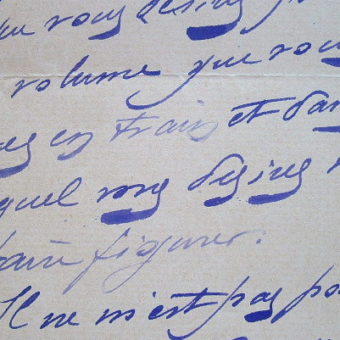 que vous désirez
volume que vous
en train et dans
quel vous désirez
faire figurer.
Il ne m'est pas